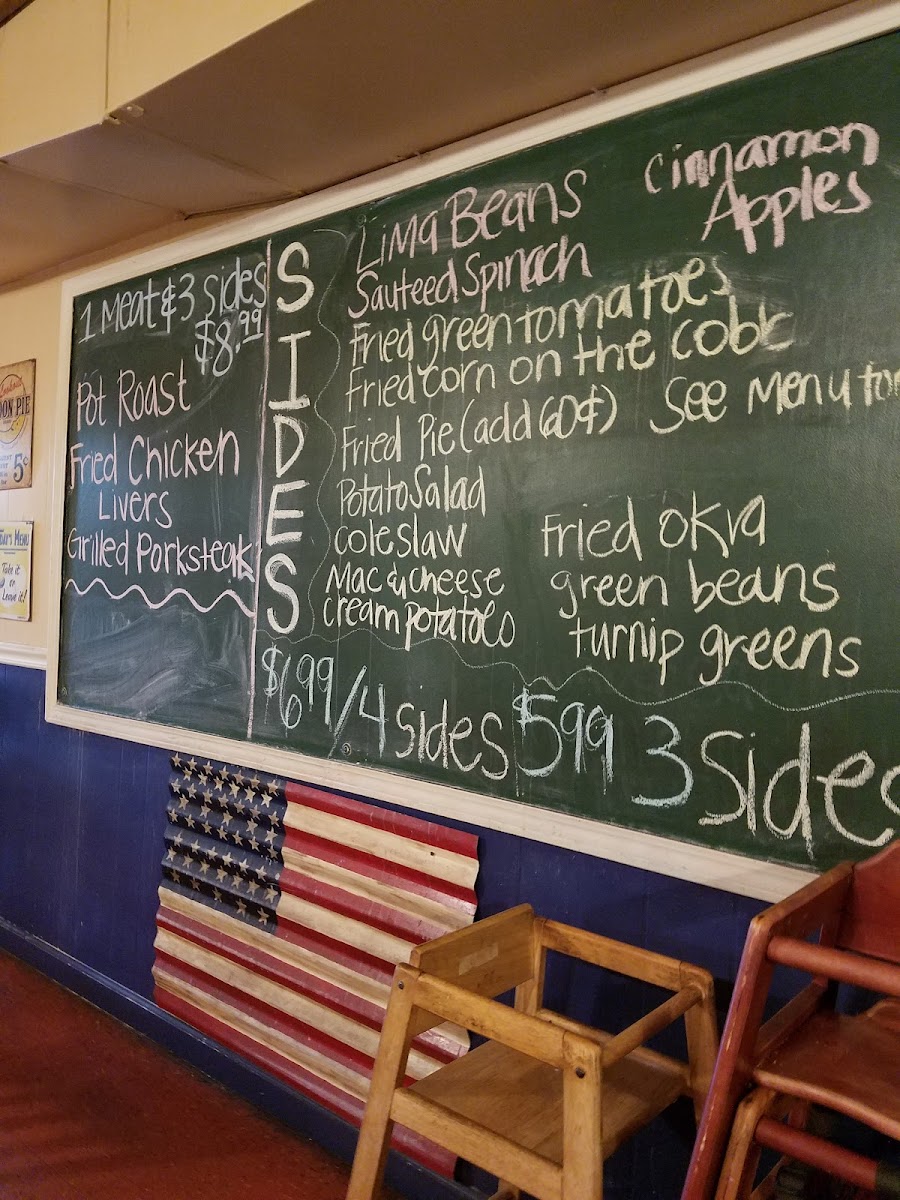 1 Meat & 3 sides
$8.99
Pot Roast
Fried Chicken
Livers
Grilled Porksteak
SIDES
Lima Beans
Sauteed Spinach
Fried green tomatoes
Fried corn on the cob
Fried Pie (add 60¢) See Menu for
Potato Salad
coleslaw
Mac & cheese
cream potatoes
Cinnamon
Apples
Fried okra
green beans
turnip greens
$6.99/4 sides $5.99 3 Sides
PIE
5¢
MENU
Take it
or
Leave it!